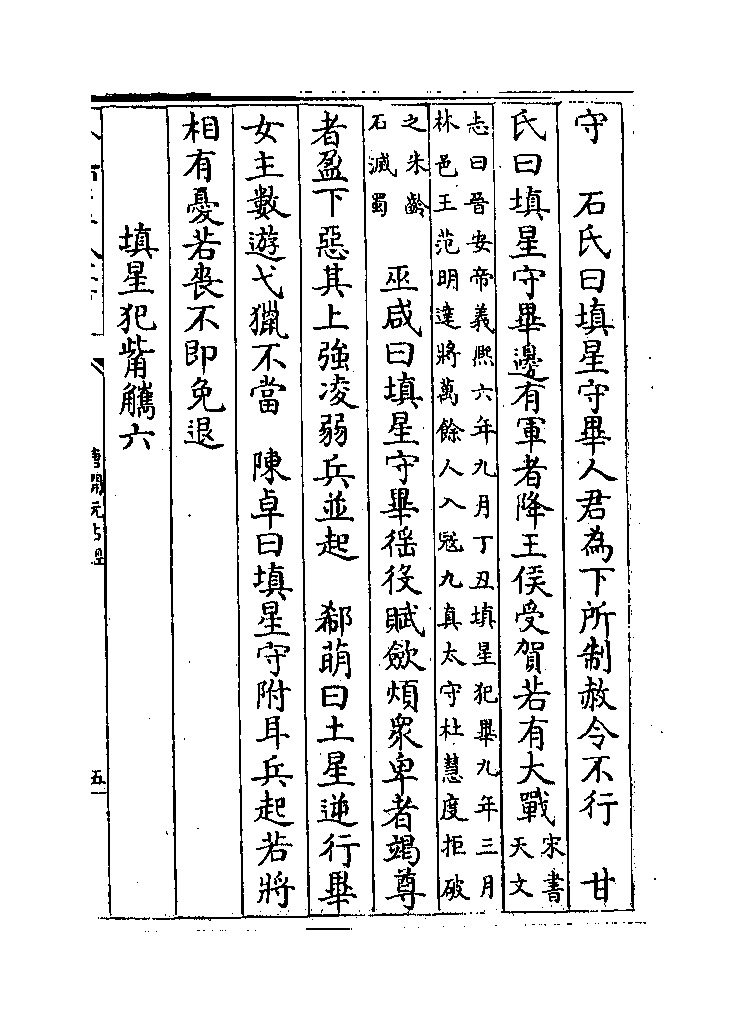 守　石氏曰填星守畢人君為下所制赦令不行　甘
氏曰填星守畢邊有軍者降王侯受賀若有大戰宋書
天文
志曰晉安帝義熙六年九月丁丑填星犯畢九年三月
林邑王范明達將萬餘人入冦九真太守杜慧度拒破
之朱齡
石滅蜀
巫咸曰填星守畢徭役賦斂煩衆卑者竭尊
者盈下惡其上強凌弱兵並起　郗萌曰土星逆行畢
女主數遊弋獵不當　陳卓曰填星守附耳兵起若將
相有憂若喪不即免退
填星犯觜觿六
唐開元占經
五